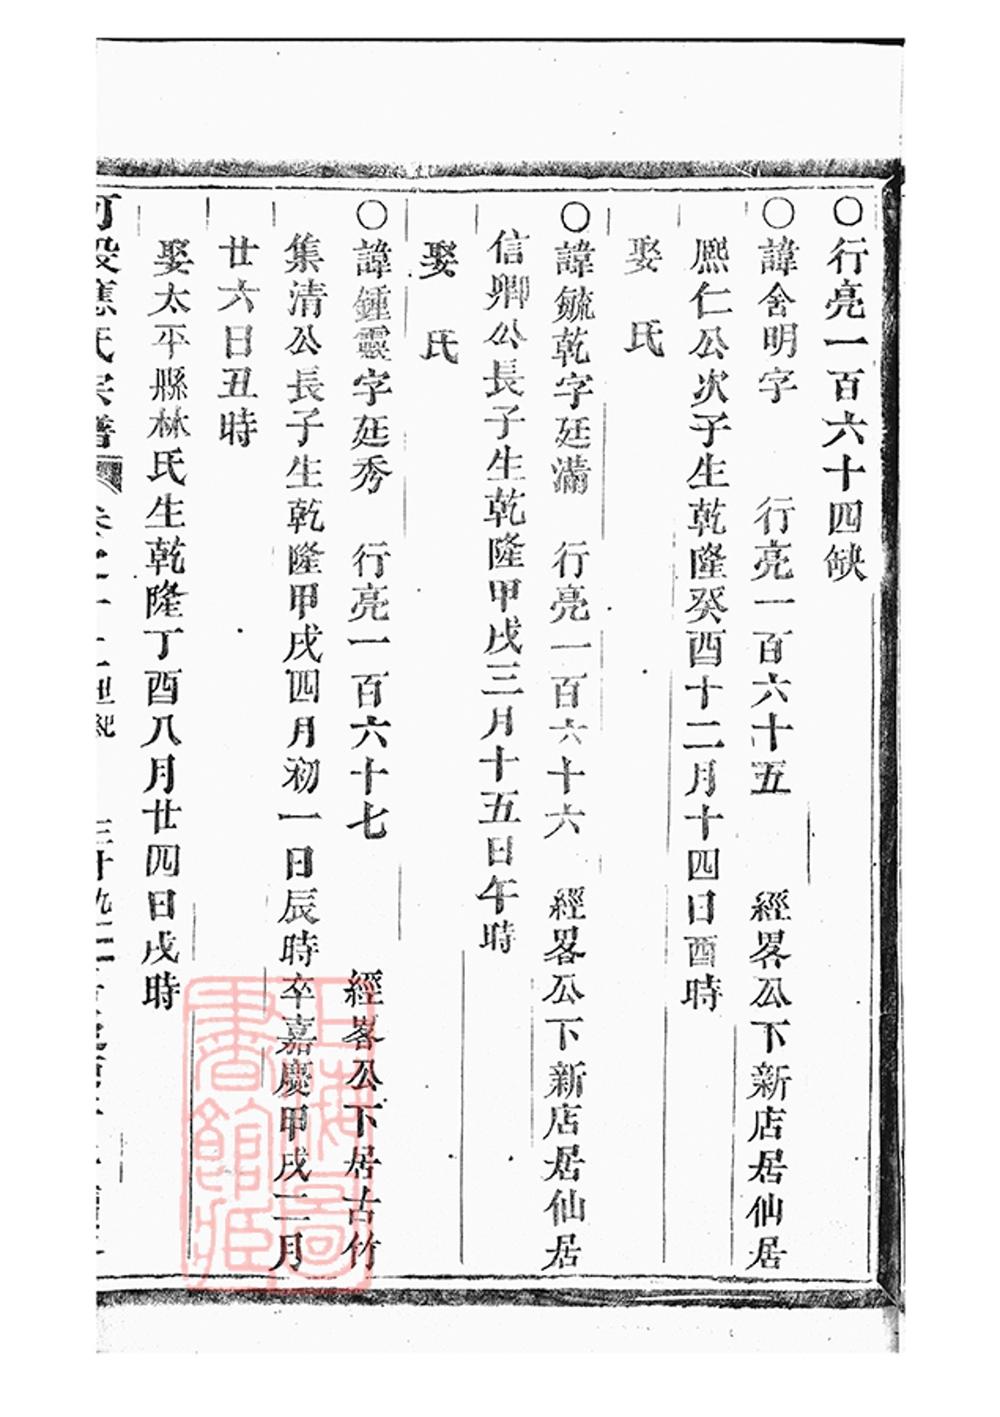 ○行亮一百六十四缺
○諱舍明字　行亮一百六十五　經畧公下新店居仙居
熈仁公次子生乾隆癸酉十二月十四日酉時
娶　氏
○諱毓乾字廷滿　行亮一百六十六　經畧公下新店居仙居
信卿公長子生乾隆甲戌三月十五日午時
娶　氏
○諱鍾靈字廷秀　行亮一百六十七　經畧公下居古竹
集清公長子生乾隆甲戌四月初一日辰時卒嘉慶甲戌二月
廿六日丑時
娶太平縣林氏生乾隆丁酉八月廿四日戌時
應氏宗譜　世紀
上海圖書館藏